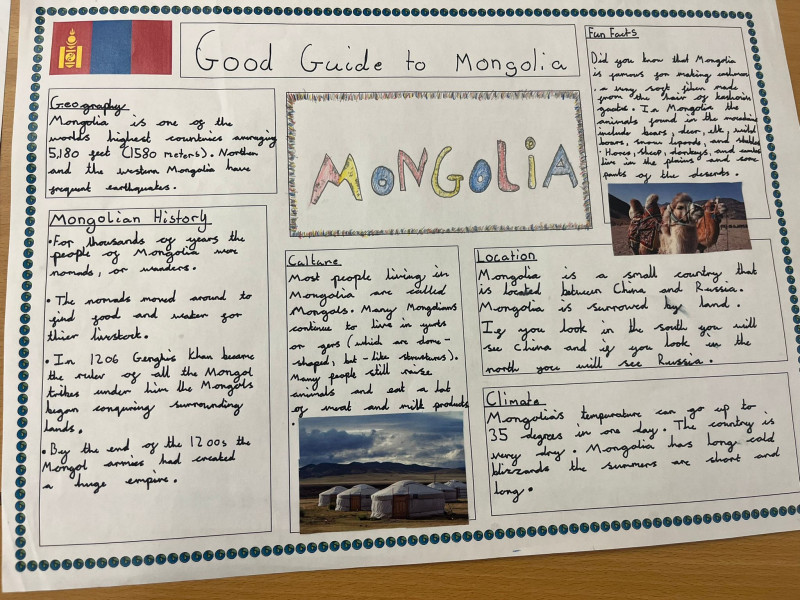 Good Guide to Mongolia
Geography
Mongolia is one of the
worlds highest countries averaging
5,180 feet (1580 meters). Northen
and the western Mongolia have
frequent earthquakes.
Mongolian History
•For thousands of years the
people of Mongolia were
nomads, or wanders.
•The nomads moved around to
find food and water for
thier livestock.
•In 1206 Genghis Khan became
the ruler of all the Mongol
tribes under him the Mongols
began conquring surrounding
lands.
•By the end of the 1200s the
Mongol armies had created
a huge empire.
MONGOLIA
Culture
Most people living in
Mongolia are called
Mongols. Many Mongolians
continue to live in yurts
or gers (which are dome-
shaped, hut-like structures).
Many people still raise
animals and eat a lot
of meat and milk products
.
Fun Facts
Did you know that Mongolia
is famous for making
a very soft made
from the hair of
goats. In Mongolia the
animals found in the
include bears, deer, elk, wild
boars, snow lepords, and
Horse, sheep, donkeys, and
live in the plains and some
parts of the deserts.
Location
Mongolia is a small country that
is located between China and Russia.
Mongolia is surrowed by land.
If you look in the south you will
see China and if you look in the
north you will see Russia.
Climate
Mongolia's tempurature can go up to
35 degrees in one day. The country is
very dry. Mongolia has long cold
blizzards the summers are short and
long.